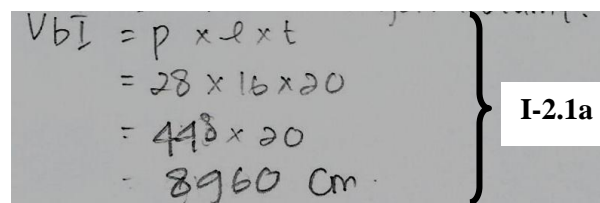 VbI = p x l x t
= 28 x 16 x 20
= 448 x 20
= 8960 cm.
I-2.1a